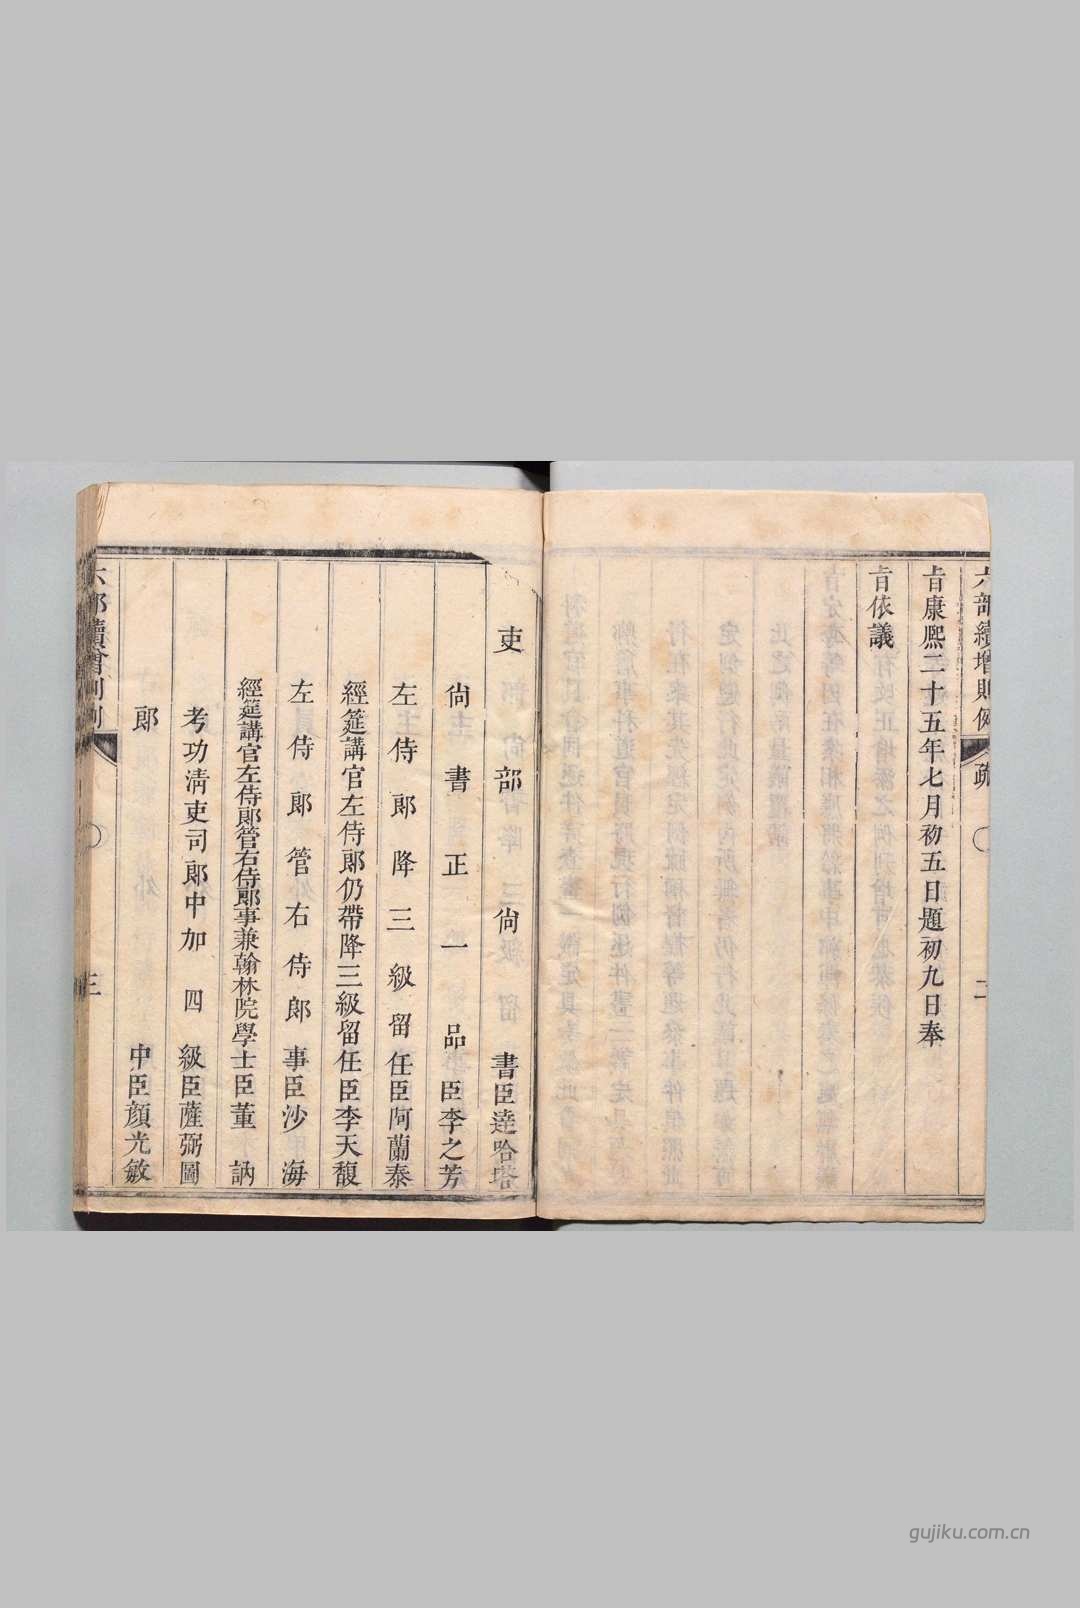 六部續增則例 疏 二
旨康熙二十五年七月初五日題初九日奉
旨依議
吏部尚書臣達哈塔
尚書正一品臣李之芳
左侍郎降三級留任臣阿蘭泰
經筵講官左侍郎仍帶降三級留任臣李天馥
左侍郎管右侍郎事臣沙海
經筵講官左侍郎管右侍郎事兼翰林院學士臣董訥
考功清吏司郎中加四級臣薩弼圖
郎中臣顔光敏
六部續增則例 三
gujiku.com.cn